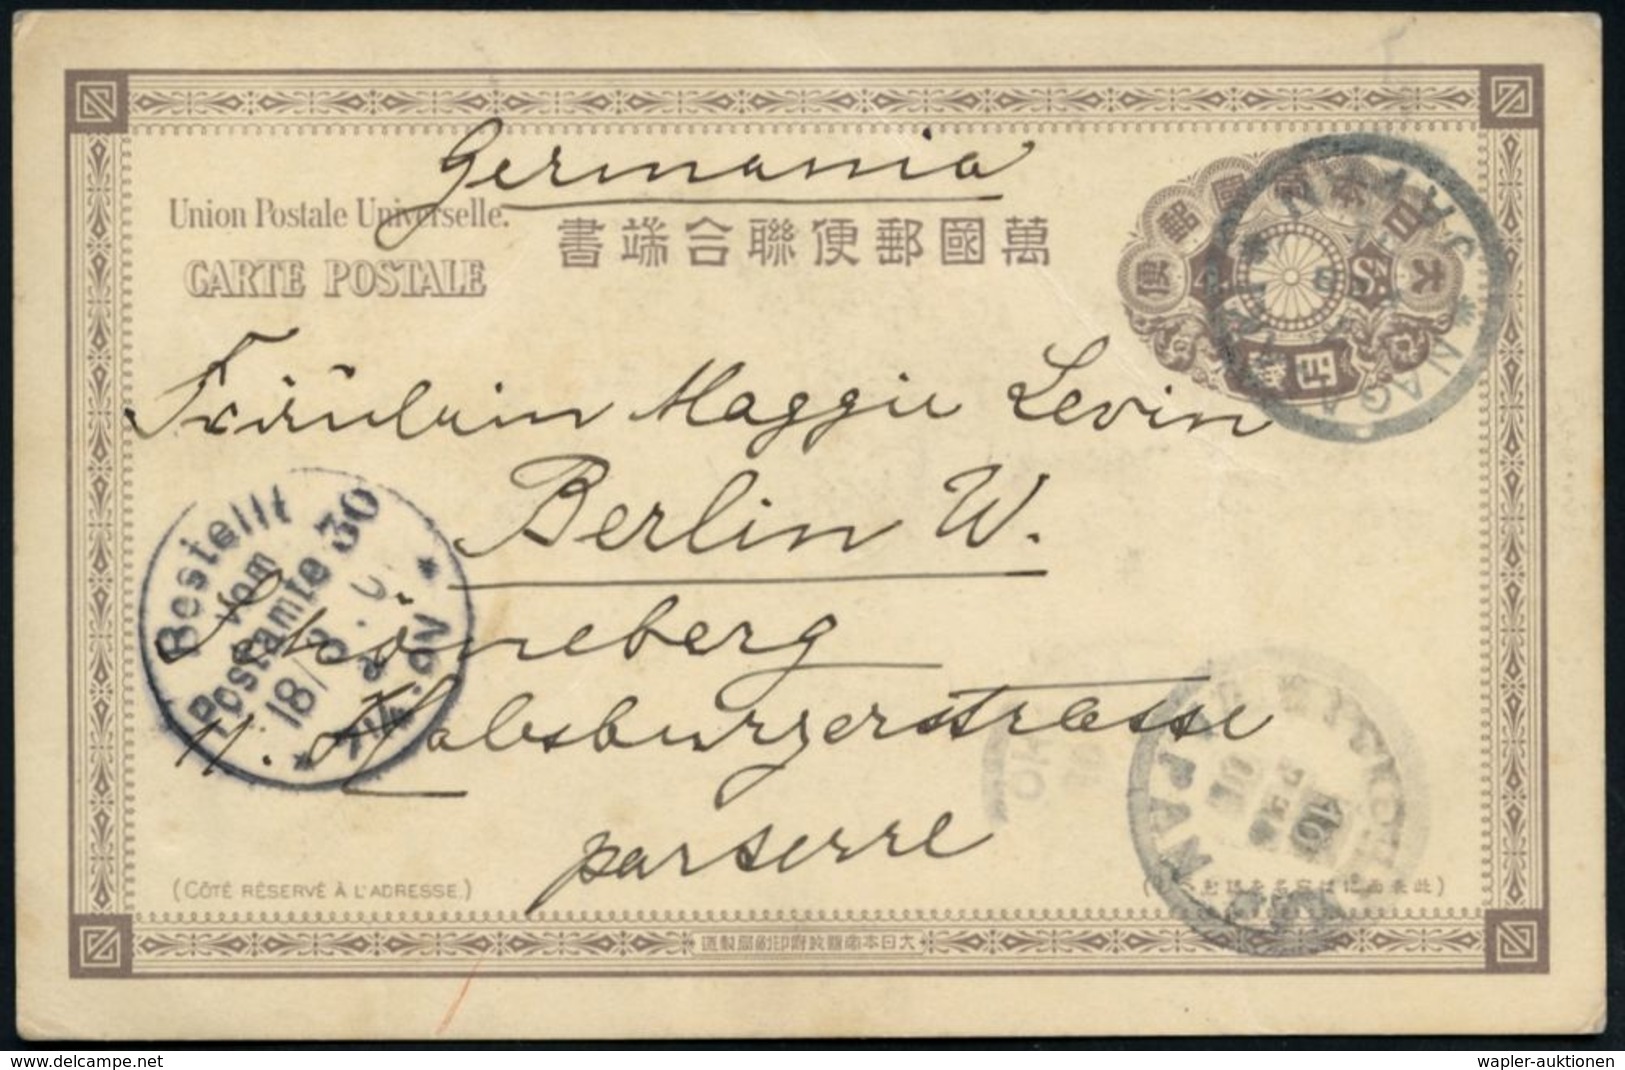 Germania
Union Postale Universelle.
CARTE POSTALE
萬國郵便聯合端書
大日本帝國郵便
四錢
印
NAGASAKI
JAPAN
Fräulein Maggie Levin
Berlin W.
Schöneberg
11. Habsburgerstrasse
parterre
Bestellt
vom
Postamte 30
18/8.
JAPAN
(CÔTÉ RÉSERVÉ À L'ADRESSE.)
大日本帝國政府印刷局製造
delcampe.net
wapler-auktionen